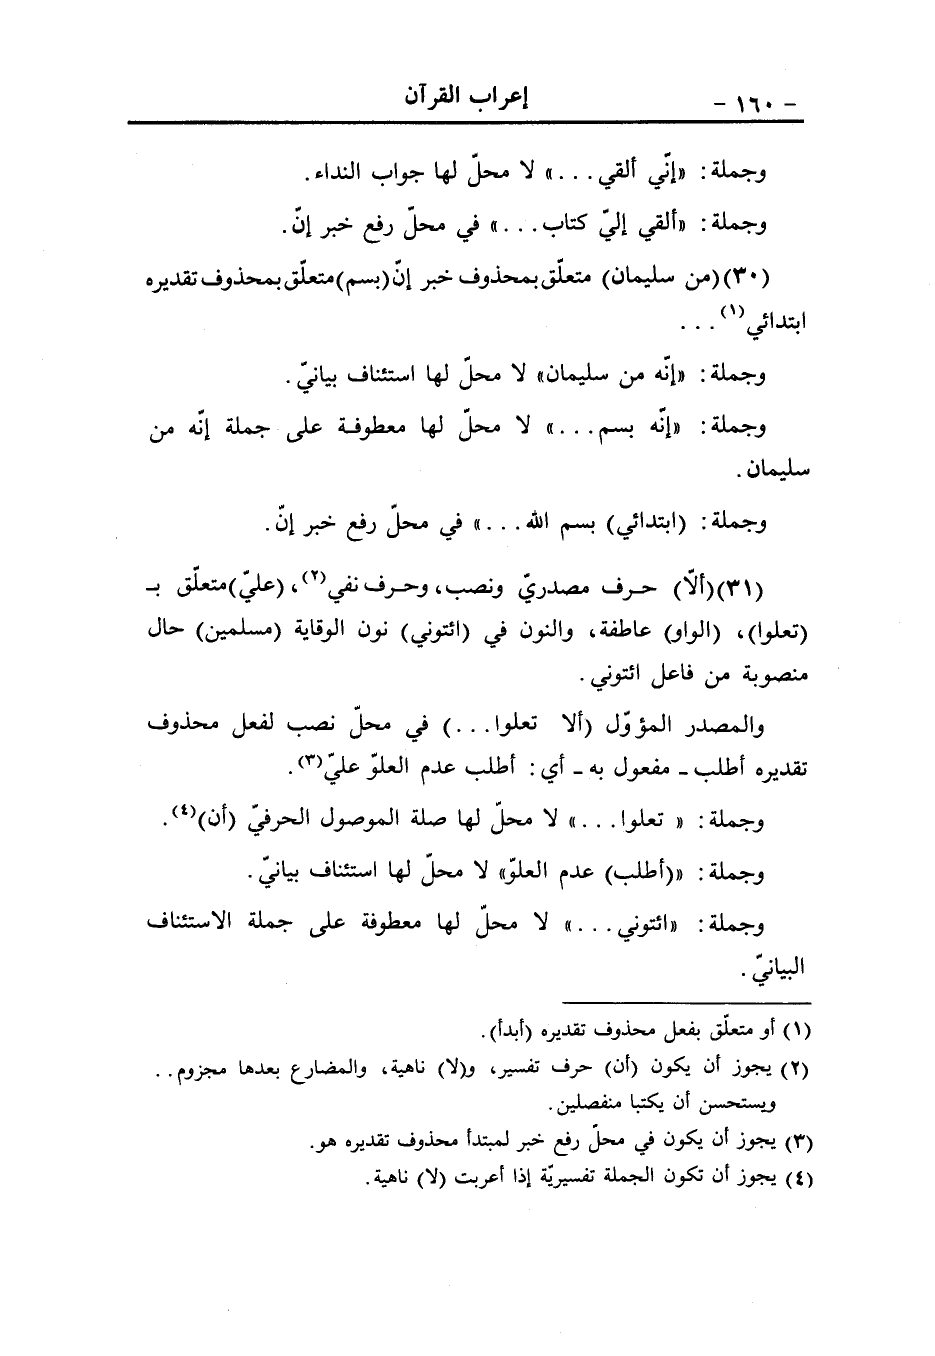 - ١٦٠ -
إعراب القرآن
وجملة: «إنّي ألقي...» لا محلّ لها جواب النداء.
وجملة: «ألقي إليّ كتاب...» في محلّ رفع خبر إنّ.
(٣٠)(من سليمان) متعلّق بمحذوف خبر إنّ(بسم)متعلّق بمحذوف تقديره
ابتدائي(١)...
وجملة: «إنّه من سليمان» لا محلّ لها استئناف بيانيّ.
وجملة: «إنّه بسم...» لا محلّ لها معطوفة على جملة إنّه من
سليمان.
وجملة: (ابتدائي) بسم الله...» في محلّ رفع خبر إنّ.
(٣١)(ألّا) حرف مصدريّ ونصب، وحرف نفي(٢)، (عليّ)متعلّق بـ
(تعلوا)، (الواو) عاطفة، والنون في (ائتوني) نون الوقاية (مسلمين) حال
منصوبة من فاعل ائتوني.
والمصدر المؤوّل (ألا تعلوا...) في محلّ نصب لفعل محذوف
تقديره أطلب ـ مفعول به ـ أي: أطلب عدم العلوّ عليّ(٣).
وجملة: « تعلوا...» لا محلّ لها صلة الموصول الحرفيّ (أن)(٤).
وجملة: «(أطلب) عدم العلوّ» لا محلّ لها استئناف بيانيّ.
وجملة: «ائتوني...» لا محلّ لها معطوفة على جملة الاستئناف
البيانيّ.
(١) أو متعلّق بفعل محذوف تقديره (أبدأ).
(٢) يجوز أن يكون (أن) حرف تفسير، و(لا) ناهية، والمضارع بعدها مجزوم..
ويستحسن أن يكتبا منفصلين.
(٣) يجوز أن يكون في محلّ رفع خبر لمبتدأ محذوف تقديره هو.
(٤) يجوز أن تكون الجملة تفسيريّة إذا أعربت (لا) ناهية.